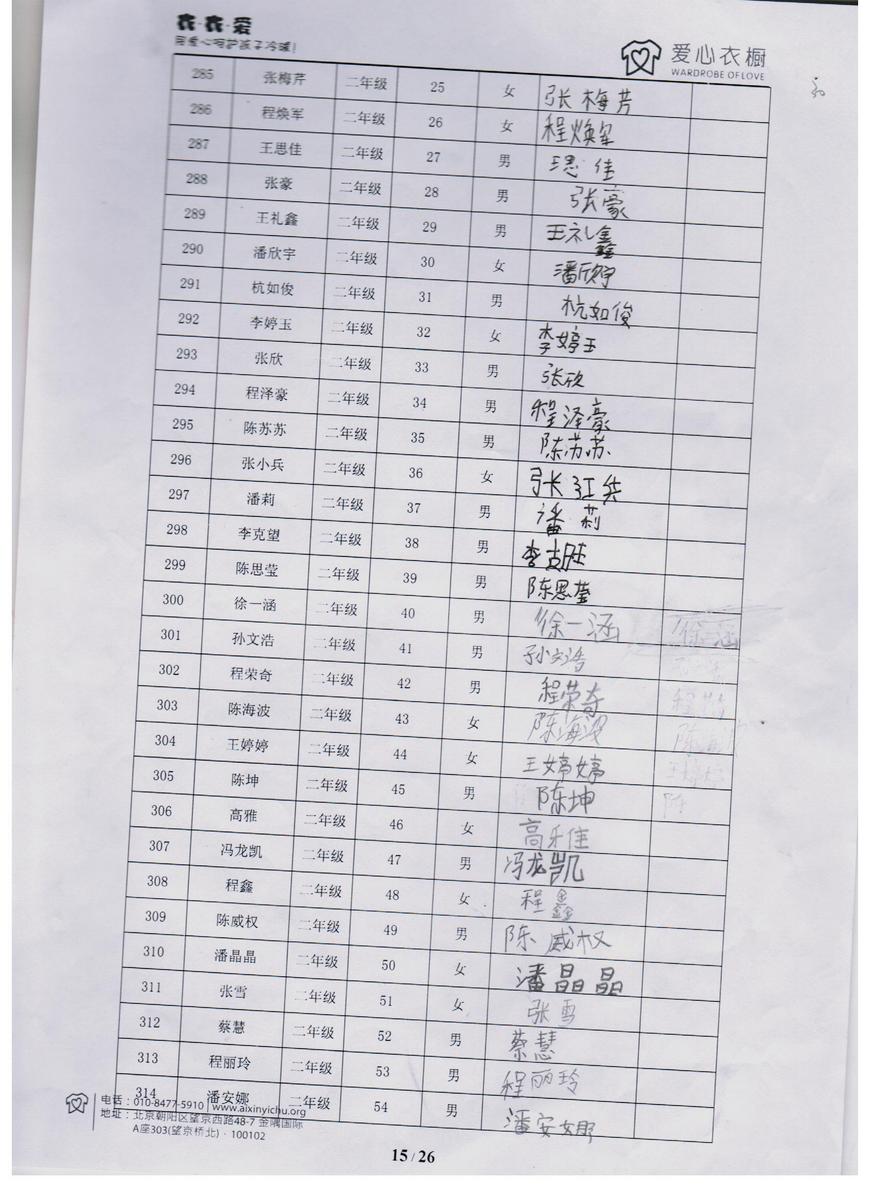 衣·衣·爱
用爱心呵护孩子冷暖!
爱心衣橱
WARDROBE OF LOVE
285 张梅芹 二年级 25 女 张梅芳
286 程焕军 二年级 26 女 程焕军
287 王思佳 二年级 27 男 王思佳
288 张豪 二年级 28 男 张豪
289 王礼鑫 二年级 29 男 王礼鑫
290 潘欣宇 二年级 30 女 潘欣宇
291 杭如俊 二年级 31 男 杭如俊
292 李婷玉 二年级 32 女 李婷玉
293 张欣 二年级 33 男 张欣
294 程泽豪 二年级 34 男 程泽豪
295 陈苏苏 二年级 35 男 陈苏苏
296 张小兵 二年级 36 女 张红兵
297 潘莉 二年级 37 男 潘莉
298 李克望 二年级 38 男
299 陈思莹 二年级 39 男 陈思莹
300 徐一涵 二年级 40 男 徐一涵 徐涵
301 孙文浩 二年级 41 男 孙文浩
302 程荣奇 二年级 42 男 程荣奇
303 陈海波 二年级 43 女 陈海波 陈海波
304 王婷婷 二年级 44 女 王婷婷 王婷婷
305 陈坤 二年级 45 男 陈坤 陈
306 高雅 二年级 46 女 高乐佳
307 冯龙凯 二年级 47 男 冯龙凯
308 程鑫 二年级 48 女 程鑫
309 陈威权 二年级 49 男 陈威权
310 潘晶晶 二年级 50 女 潘晶晶
311 张雪 二年级 51 女 张雪
312 蔡慧 二年级 52 男 蔡慧
313 程丽玲 二年级 53 男 程丽玲
314 潘安娜 二年级 54 男 潘安娜
电话:010-8477-5910 | www.aixinyichu.org
地址:北京朝阳区望京西路48-7 金隅国际
A座303(望京桥北)·100102
15 / 26